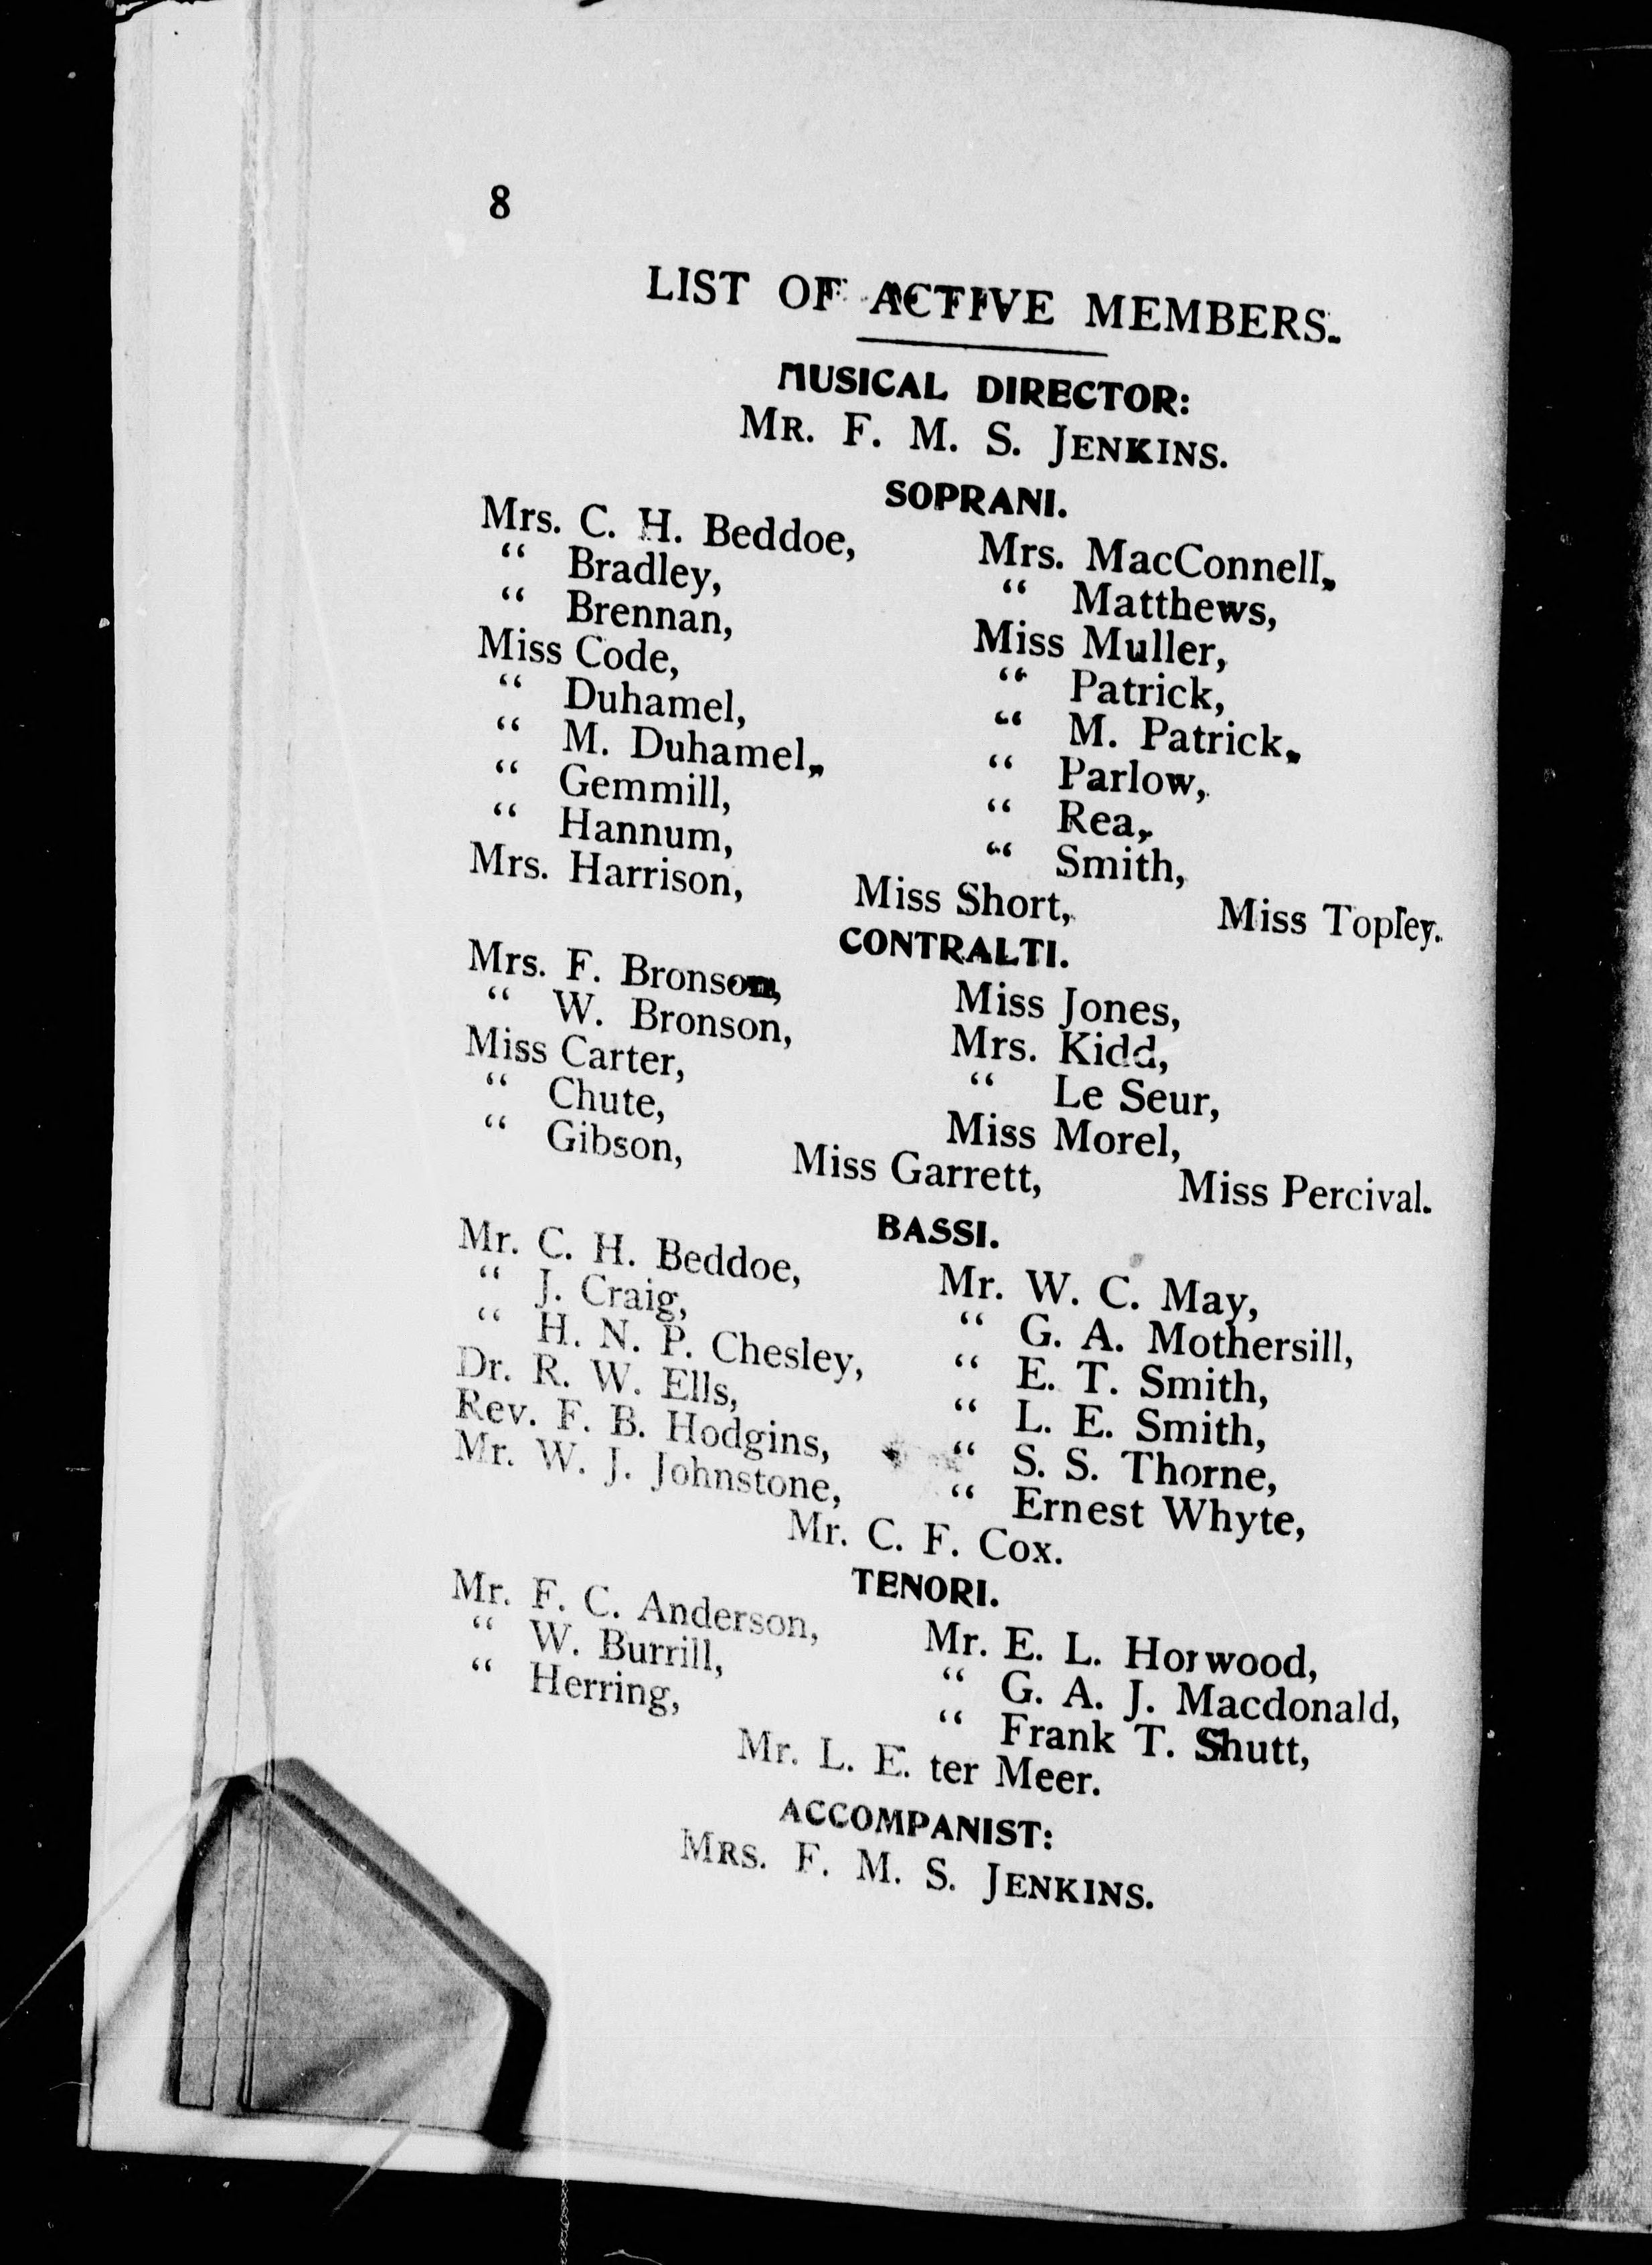 8
LIST OF ACTIVE MEMBERS.
MUSICAL DIRECTOR:
MR. F. M. S. JENKINS.
SOPRANI.
Mrs. C. H. Beddoe, Mrs. MacConnell,
“ Bradley, “ Matthews,
“ Brennan, Miss Muller,
Miss Code, “ Patrick,
“ Duhamel, “ M. Patrick,
“ M. Duhamel, “ Parlow,
“ Gemmill, “ Rea,
“ Hannum, “ Smith,
Mrs. Harrison, Miss Short, Miss Topley.
CONTRALTI.
Mrs. F. Bronson, Miss Jones,
“ W. Bronson, Mrs. Kidd,
Miss Carter, “ Le Seur,
“ Chute, Miss Morel,
“ Gibson, Miss Garrett, Miss Percival.
BASSI.
Mr. C. H. Beddoe, Mr. W. C. May,
“ J. Craig, “ G. A. Mothersill,
“ H. N. P. Chesley, “ E. T. Smith,
Dr. R. W. Ells, “ L. E. Smith,
Rev. F. B. Hodgins, “ S. S. Thorne,
Mr. W. J. Johnstone, “ Ernest Whyte,
Mr. C. F. Cox.
TENORI.
Mr. F. C. Anderson, Mr. E. L. Horwood,
“ W. Burrill, “ G. A. J. Macdonald,
“ Herring, “ Frank T. Shutt,
Mr. L. E. ter Meer.
ACCOMPANIST:
MRS. F. M. S. JENKINS.